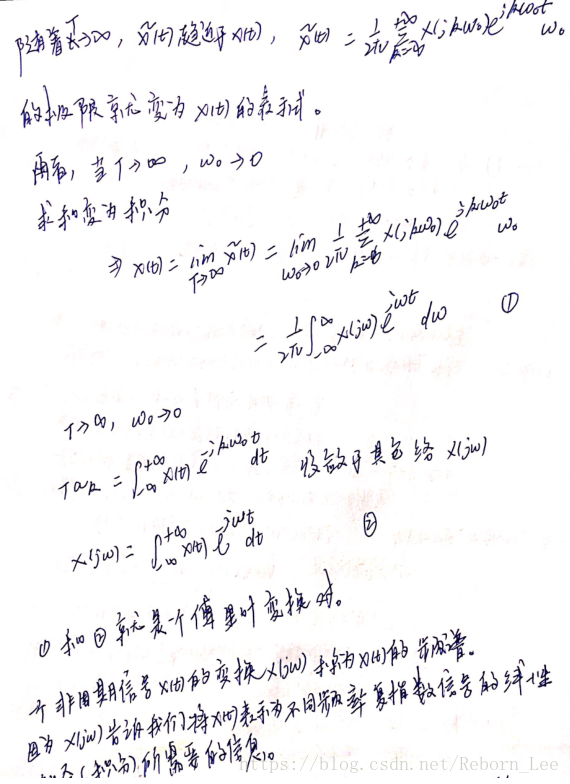 随着T→∞, x̃(t)趋近于x(t), x̃(t) = 1/2π ∑_{k=-∞}^{+∞} X(jkω₀)e^{jkω₀t} ω₀
的极限就变为x(t)的表示式。
再看, 当T→∞, ω₀→0
求和变为积分
⇒ x(t) = lim_{T→∞} x̃(t) = lim_{ω₀→0} 1/2π ∑_{k=-∞}^{+∞} X(jkω₀) e^{jkω₀t} ω₀
= 1/2π ∫_{-∞}^{∞} X(jω) e^{jωt} dω ①
T→∞, ω₀→0
Ta_k = ∫_{-∞}^{+∞} x(t) e^{-jkω₀t} dt 收敛于其包络 X(jω)
X(jω) = ∫_{-∞}^{+∞} x(t) e^{-jωt} dt ②
①和②就是一个傅里叶变换对。
个非周期信号x(t)的变换X(jω)称为x(t)的频谱。
因为X(jω)告诉我们将x(t)表示为不同频率复指数信号的线性
(积分)所需要的信息。
https://blog.csdn.net/Reborn_Lee